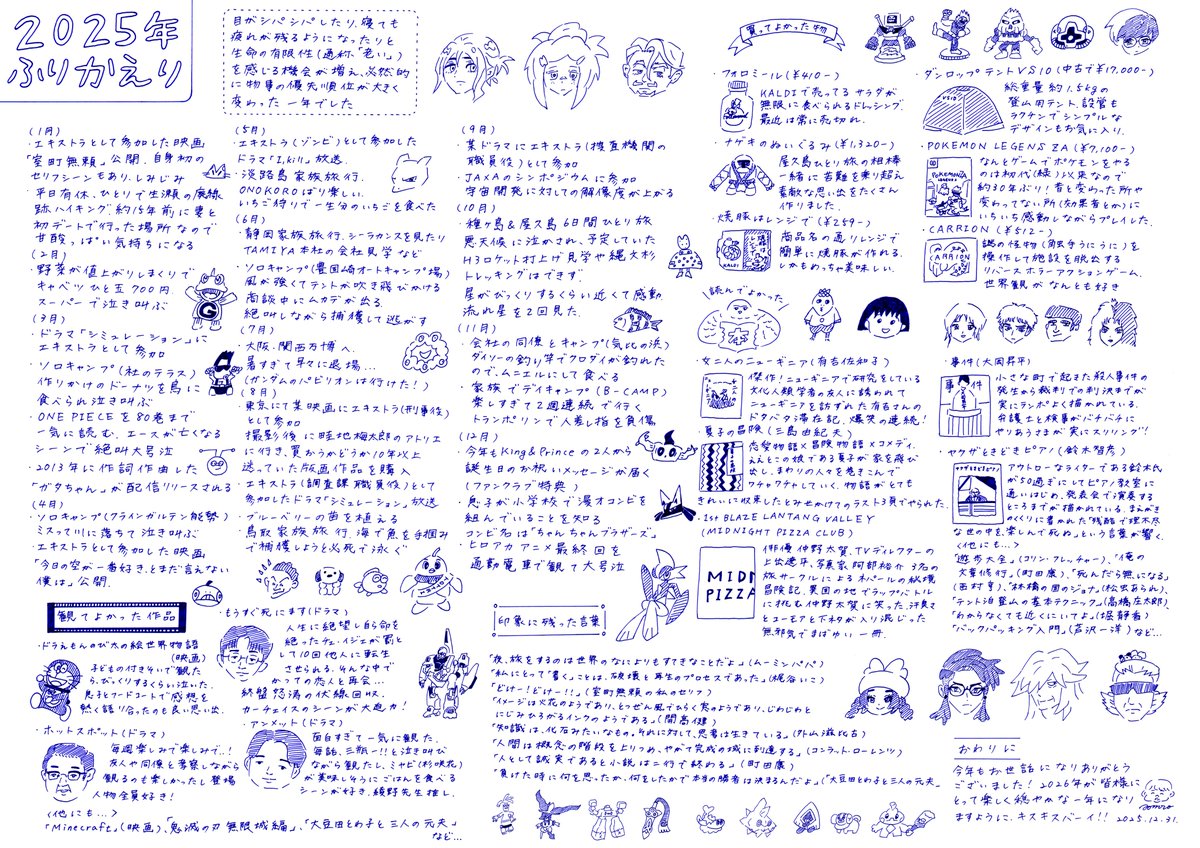 2025年
ふりかえり
目がシパシパしたり、寝ても
疲れが残るようになったりと
生命の有限性(通称「老い」)
を感じる機会が増え、必然的
に物事の優先順位が大きく
変わった一年でした
(1月)
・エキストラとして参加した映画
「室町無頼」公開。自身初の
セリフシーンもあり、しみじみ
・平日有休、ひとりで生瀬の廃線
跡ハイキング。約15年前に妻と
初デートで行った場所なので
甘酸っぱい気持ちになる
(2月)
・野菜が値上がりしまくりで
キャベツひと玉700円。
スーパーで泣き叫ぶ
(3月)
・ドラマ「シミュレーション」に
エキストラとして参加
・ソロキャンプ(杜のテラス)
作りかけのドーナツを鳥に
食べられ泣き叫ぶ
・ONE PIECEを80巻まで
一気に読む。エースが亡くなる
シーンで絶叫大号泣
・2013年に作詞作曲した
「ガタちゃん」が配信リリースされる
(4月)
・ソロキャンプ(クラインガルテン能勢)
ミスって川に落ちて泣き叫ぶ
・エキストラとして参加した映画
「今日の空が一番好き、とまだ言えない
僕は」公開。
(5月)
・エキストラ(ゾンビ)として参加した
ドラマ「I, KILL」放送。
・淡路島家族旅行。
ONOKOROばり楽しい。
いちご狩りで一生分のいちごを食べた
(6月)
・静岡家族旅行。シーラカンスを見たり
TAMIYA本社の会社見学など
・ソロキャンプ(豊国崎オートキャンプ場)
風が強くてテントが吹き飛びかける
商談中にムカデが出る。
絶叫しながら捕獲して逃がす
(7月)
・大阪・関西万博へ。
暑すぎて早々に退場…
(ガンダムのパビリオンは行けた!)
(8月)
・東京にて某映画にエキストラ(刑事役)
として参加
撮影後に畦地梅太郎のアトリエ
に行き、買おうかどうか10年以上
迷っていた版画作品を購入
・エキストラ(調査課職員役)として
参加したドラマ「シミュレーション」放送
・ブルーベリーの苗を植える
・鳥取家族旅行。海で魚を手掴み
で捕獲しようと必死で泳ぐ
(9月)
・某ドラマにエキストラ(捜査機関の
職員役)として参加
・JAXAのシンポジウムに参加
宇宙開発に対しての解像度が上がる
(10月)
・種ヶ島&屋久島6日間ひとり旅
悪天候に泣かされ、予定していた
H3ロケット打上げ見学や縄文杉
トレッキングはできず。
星がびっくりするくらい近くて感動。
流れ星を2回見た。
(11月)
・会社の同僚とキャンプ(気比の浜)
ダイソーの釣り竿でクロダイが釣れた
のでムニエルにして食べる
・家族でデイキャンプ(B-CAMP)
楽しすぎて2週連続で行く
トランポリンで人差し指を負傷
(12月)
・今年もKing&Princeの2人から
誕生日のお祝いメッセージが届く
(ファンクラブ特典)
・息子が小学校で漫才コンビを
組んでいることを知る
コンビ名は「ちゃんちゃんブラザーズ」
・ヒロアカ アニメ最終回を
通勤電車で観て大号泣
買ってよかった物
・フォロミール(¥410-)
KALDIで売ってるサラダが
無限に食べられるドレッシング。
最近は常に売切れ。
・ナゲキのぬいぐるみ(¥1,320-)
屋久島ひとり旅の相棒
一緒に苦難を乗り超え
素敵な思い出をたくさん
作りました。
・焼豚はレンジで(¥259-)
KALDI
商品名の通りレンジで
簡単に焼豚が作れる。
しかもめっちゃ美味しい。
・ダンロップ テント VS10(中古で¥17,000-)
VS10
総重量 約1.5kgの
登山用テント。設営も
ラクチンでシンプルな
デザインもお気に入り。
・POKEMON LEGENS ZA(¥7,100-)
なんとゲームでポケモンをやる
のは初代(緑)以来なので
約30年ぶり!昔と変わった所や
変わってない所(効果音とか)に
いちいち感動しながらプレイした。
・CARRION(¥512-)
CARRION
謎の怪物(触手うにうに)を
操作して施設を脱出する
リバースホラーアクションゲーム。
世界観がなんとも好き
読んでよかった
・女二人のニューギニア(有吉佐和子)
傑作!ニューギニアで研究をしている
文化人類学者の友人に誘われて
ニューギニアを訪ずれた有吉さんの
ドタバタ滞在記。爆笑の連続!
・夏子の冒険(三島由紀夫)
恋愛物語×冒険物語×コメディ。
ええとこの娘である夏子が家を飛び
出し、まわりの人々を巻きこんで
ワチャワチャしていく。物語がとても
きれいに収束したとみせかけてのラスト3頁でやられた。
・1st BLAZE LANTANG VALLEY
(MIDNIGHT PIZZA CLUB)
MIDN
PIZZA
俳優 仲野太賀、TVディレクターの
上出遼平、写真家 阿部裕介 3名の
旅サークルによるネパールの秘境
冒険記。異国の地でラップバトル
に挑む仲野太賀に笑った。汗臭さ
とユーモアと下ネタが入り混じった
無邪気でまばゆい一冊。
・事件(大岡昇平)
事件
小さな町で起きた殺人事件の
発生から裁判での判決までが
実にテンポよく描かれている。
弁護士と検事がバチバチに
やりあうさまが実にスリリング!
・ヤクザときどきピアノ(鈴木智彦)
アウトローなライターである鈴木氏
が50過ぎにしてピアノ教室に
通いはじめ、発表会で演奏する
ところまでが描れている。まえがき
のくくりに書かれた「残酷で理不尽
な世の中を、楽しんで死ぬ」という言葉が響く。
<他にも…>
「遊歩大全」(コリン・フレッチャー)、「俺の
文章修行」(町田康)、「死んだら無になる」
(西村亨)、「林檎の国のジョナ」(松虫あられ)、
「テント泊登山の基本テクニック」(高橋庄太郎)、
「わからなくても近くにいてよ」(堀静香)
「バックパッキング入門」(芦沢一洋)など…
観てよかった作品
・ドラえもんのび太の絵世界物語
(映画)
子どもの付きそいで観た
ら、びっくりするくらい泣いた。
息子とフードコートで感想を
熱く語り合ったのも良い思い出。
・ホットスポット(ドラマ)
毎週楽しみで楽しみで…!
友人や同僚と考察しながら
観るのも楽しかった!登場
人物全員好き!
・もうすぐ死にます(ドラマ)
人生に絶望し自ら命を
絶ったチェ・イジェが罰と
して10回他人に転生
させられる。そんな中で
かつての恋人と再会…
終盤怒涛の伏線回収。
カーチェイスのシーンが大迫力!
・アンメット(ドラマ)
面白すぎて一気に観た。
毎話、三瓶ー!!と泣き叫び
ながら観たし、ミヤビ(杉咲花)
が美味しそうにごはんを食べる
シーンが好き。綾野先生推し。
<他にも…>
「Minecraft」(映画)、「鬼滅の刃 無限城編」、「大豆田とわ子と三人の元夫」
など…
印象に残った言葉
「夜、旅をするのは世界のなによりもすてきなことだよ」(ムーミンパパ)
「私にとって「書く」ことは、破壊と再生のプロセスであった」(梶谷いこ)
「どけー!どけー!!」(室町無頼の私のセリフ)
「イメージは火花のようであり、とつぜん風でひらく窓のようであり、じわじわと
にじみひろがるインクのようである」(開高健)
「知識は、化石みたいなもの。それに対して、思考は生きている。」(外山滋比古)
「人間は概念の階段を上りつめ、やがて完成の域に到達する」(コンラット・ローレンツ)
「人として誠実であると小説は二行で終わる」(町田康)
「負けた時に何を思ったか、何をしたかで本当の勝者は決まるんだよ」(大豆田とわ子と三人の元夫)
おわりに
今年もお世話になりありがとう
ございました!2026年が皆様に
とって楽しく穏やかな一年になり
ますように。キスキスバーイ!! 2025.12.31.